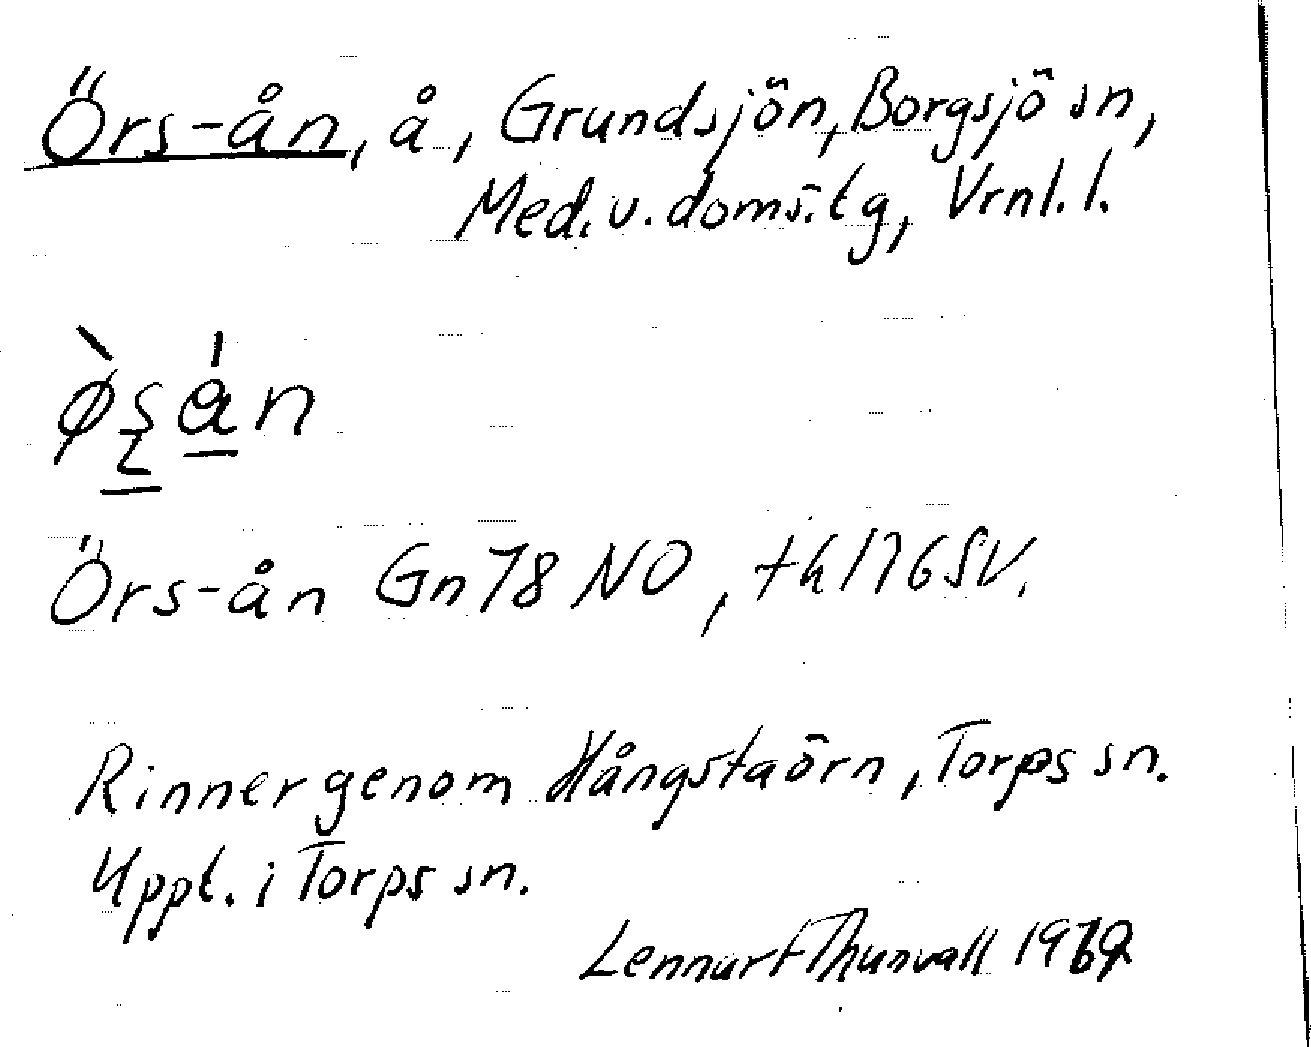 Örs-ån, å, Grundsjön, Borgsjö sn,
Med. v. doms. tg, Vrnl. l.
Örs-ån Gn 78 NO, tk 176 SV.
Rinner genom Hångstaörn, Torps sn.
Uppt. i Torps sn.
Lennart Thunvall